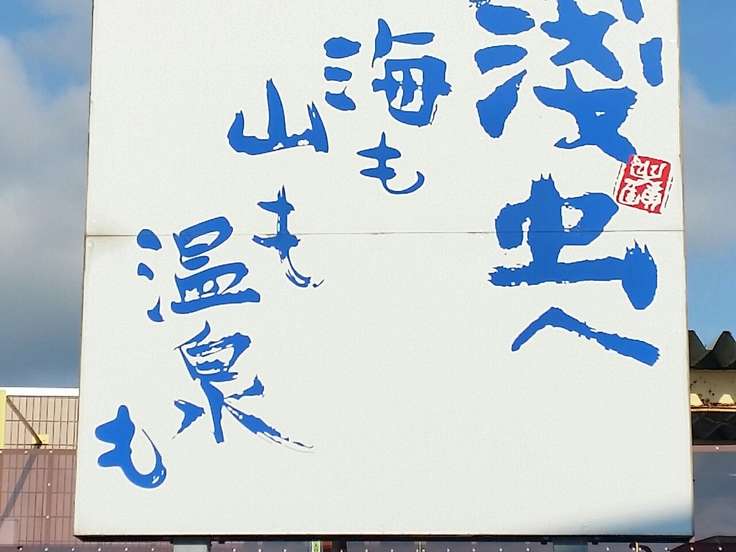 浅虫へ
海も
山も
温泉も